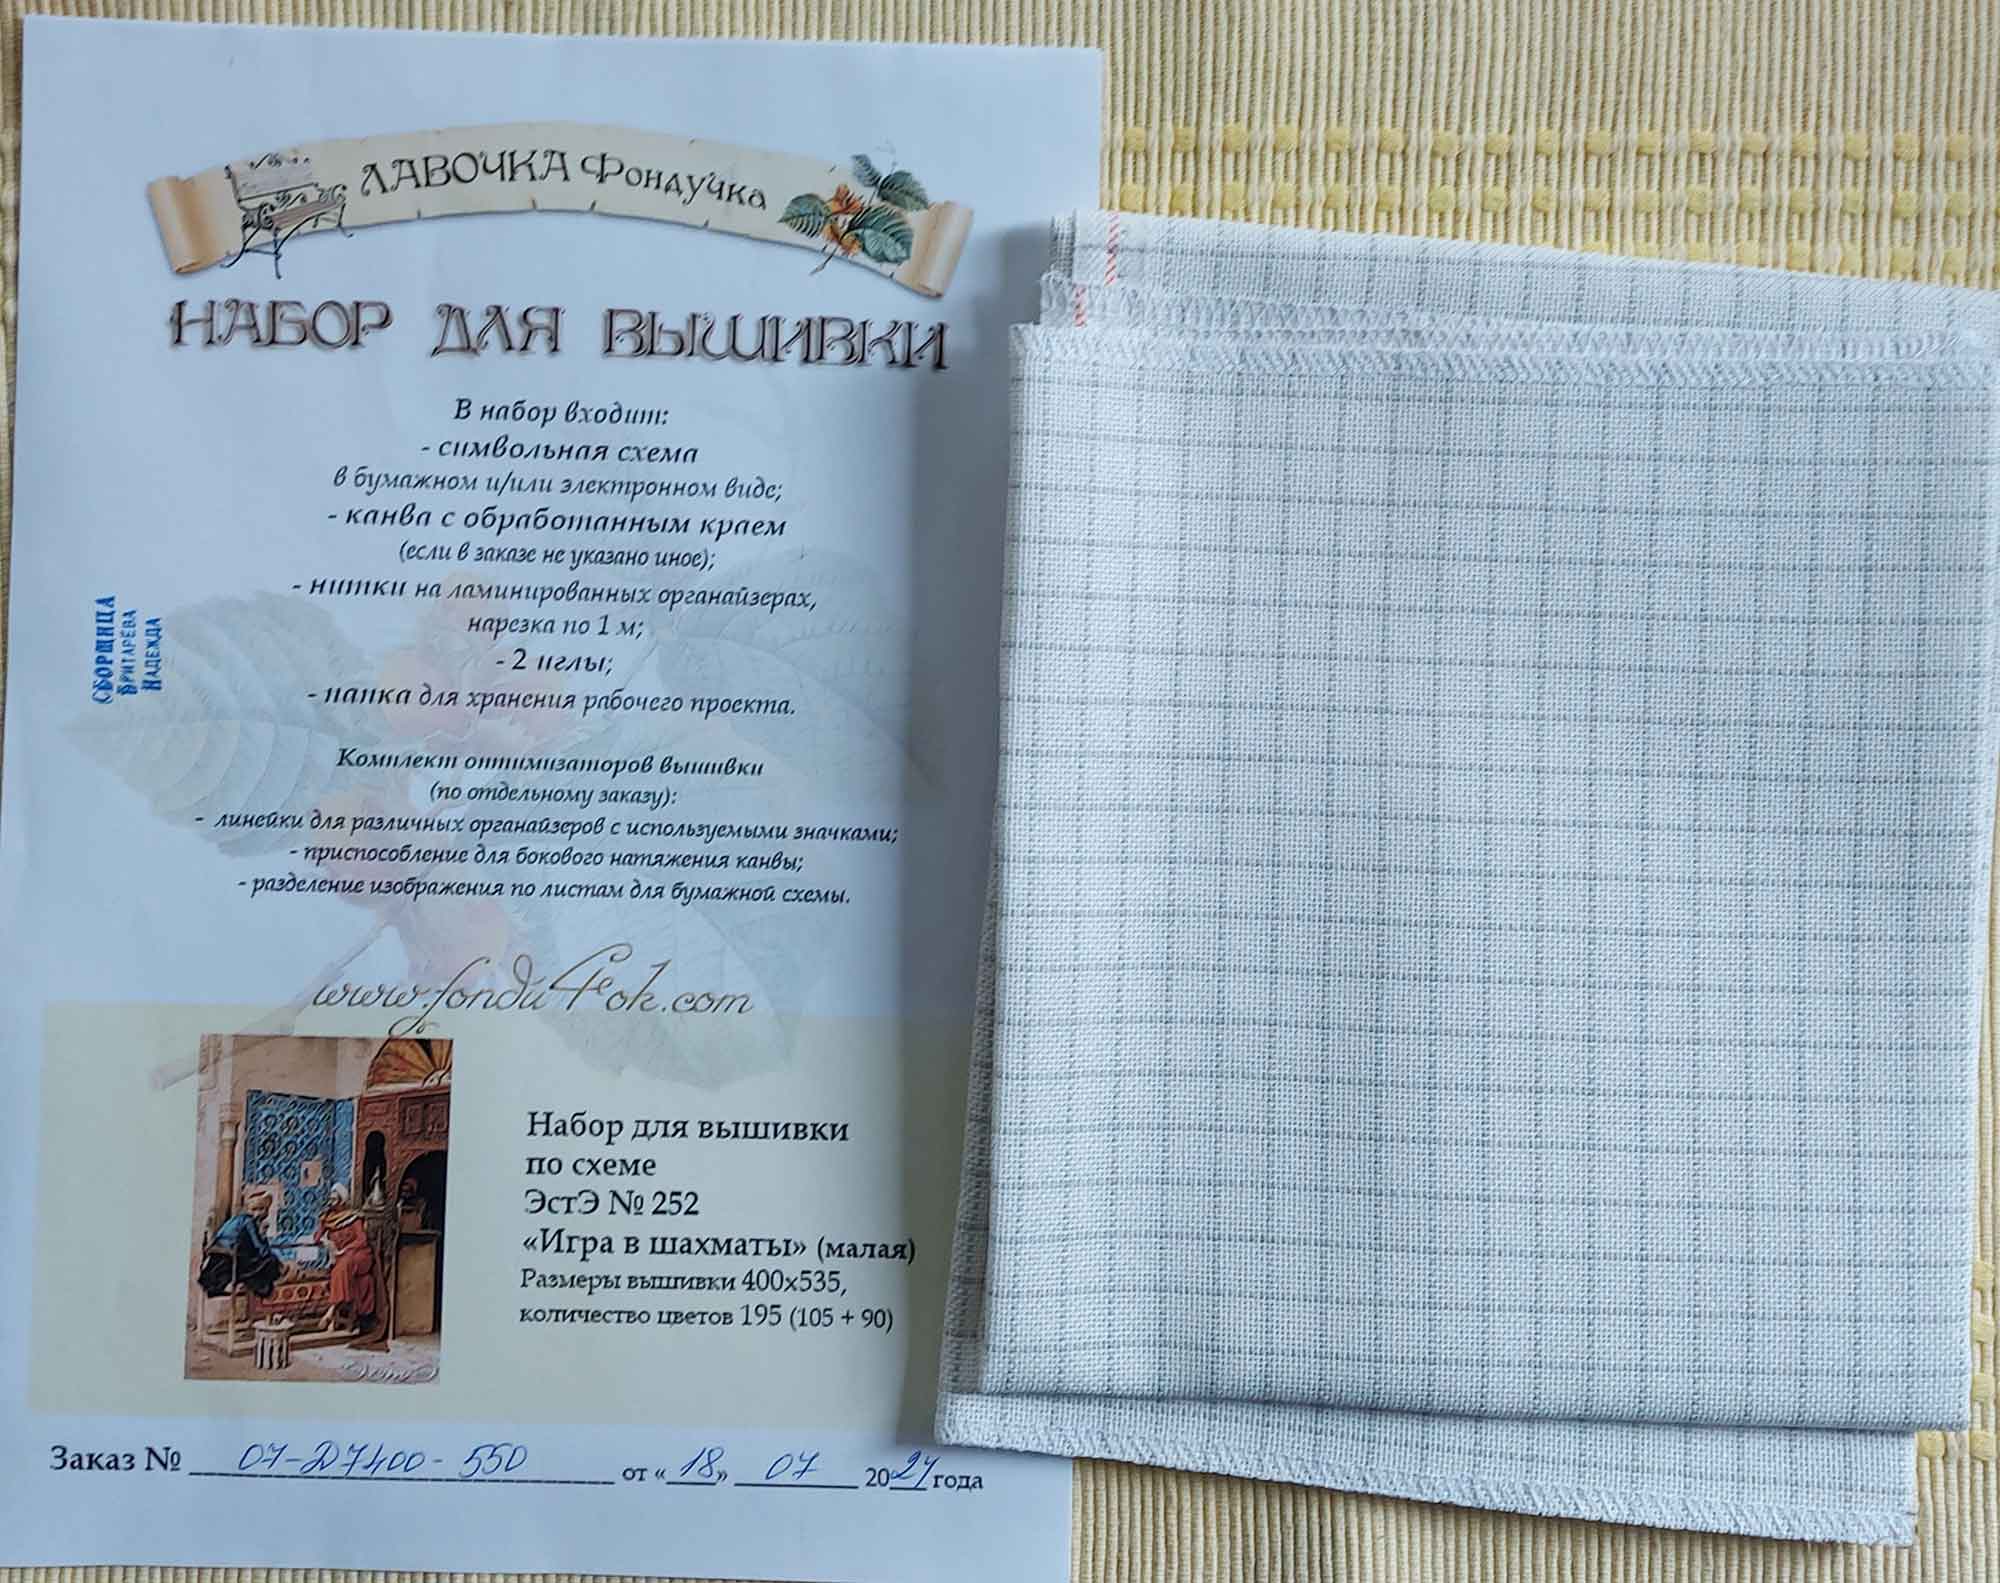 ЛАВОЧКА Фондучка
НАБОР ДЛЯ ВЫШИВКИ
В набор входит:
- символьная схема
в бумажном и/или электронном виде;
- канва с обработанным краем
(если в заказе не указано иное);
- нитки на ламинированных органайзерах,
нарезка по 1 м;
- 2 иглы;
- папка для хранения рабочего проекта.
СБОРЩИЦА
БРИТАРЁВА
НАДЕЖДА
Комплект оптимизаторов вышивки
(по отдельному заказу):
- линейки для различных органайзеров с используемыми значками;
- приспособление для бокового натяжения канвы;
- разделение изображения по листам для бумажной схемы.
www.fondu4ok.com
Набор для вышивки
по схеме
ЭстЭ № 252
«Игра в шахматы» (малая)
Размеры вышивки 400х535,
количество цветов 195 (105 + 90)
Заказ № 07-D7400-550 от «18» 07 2024 года